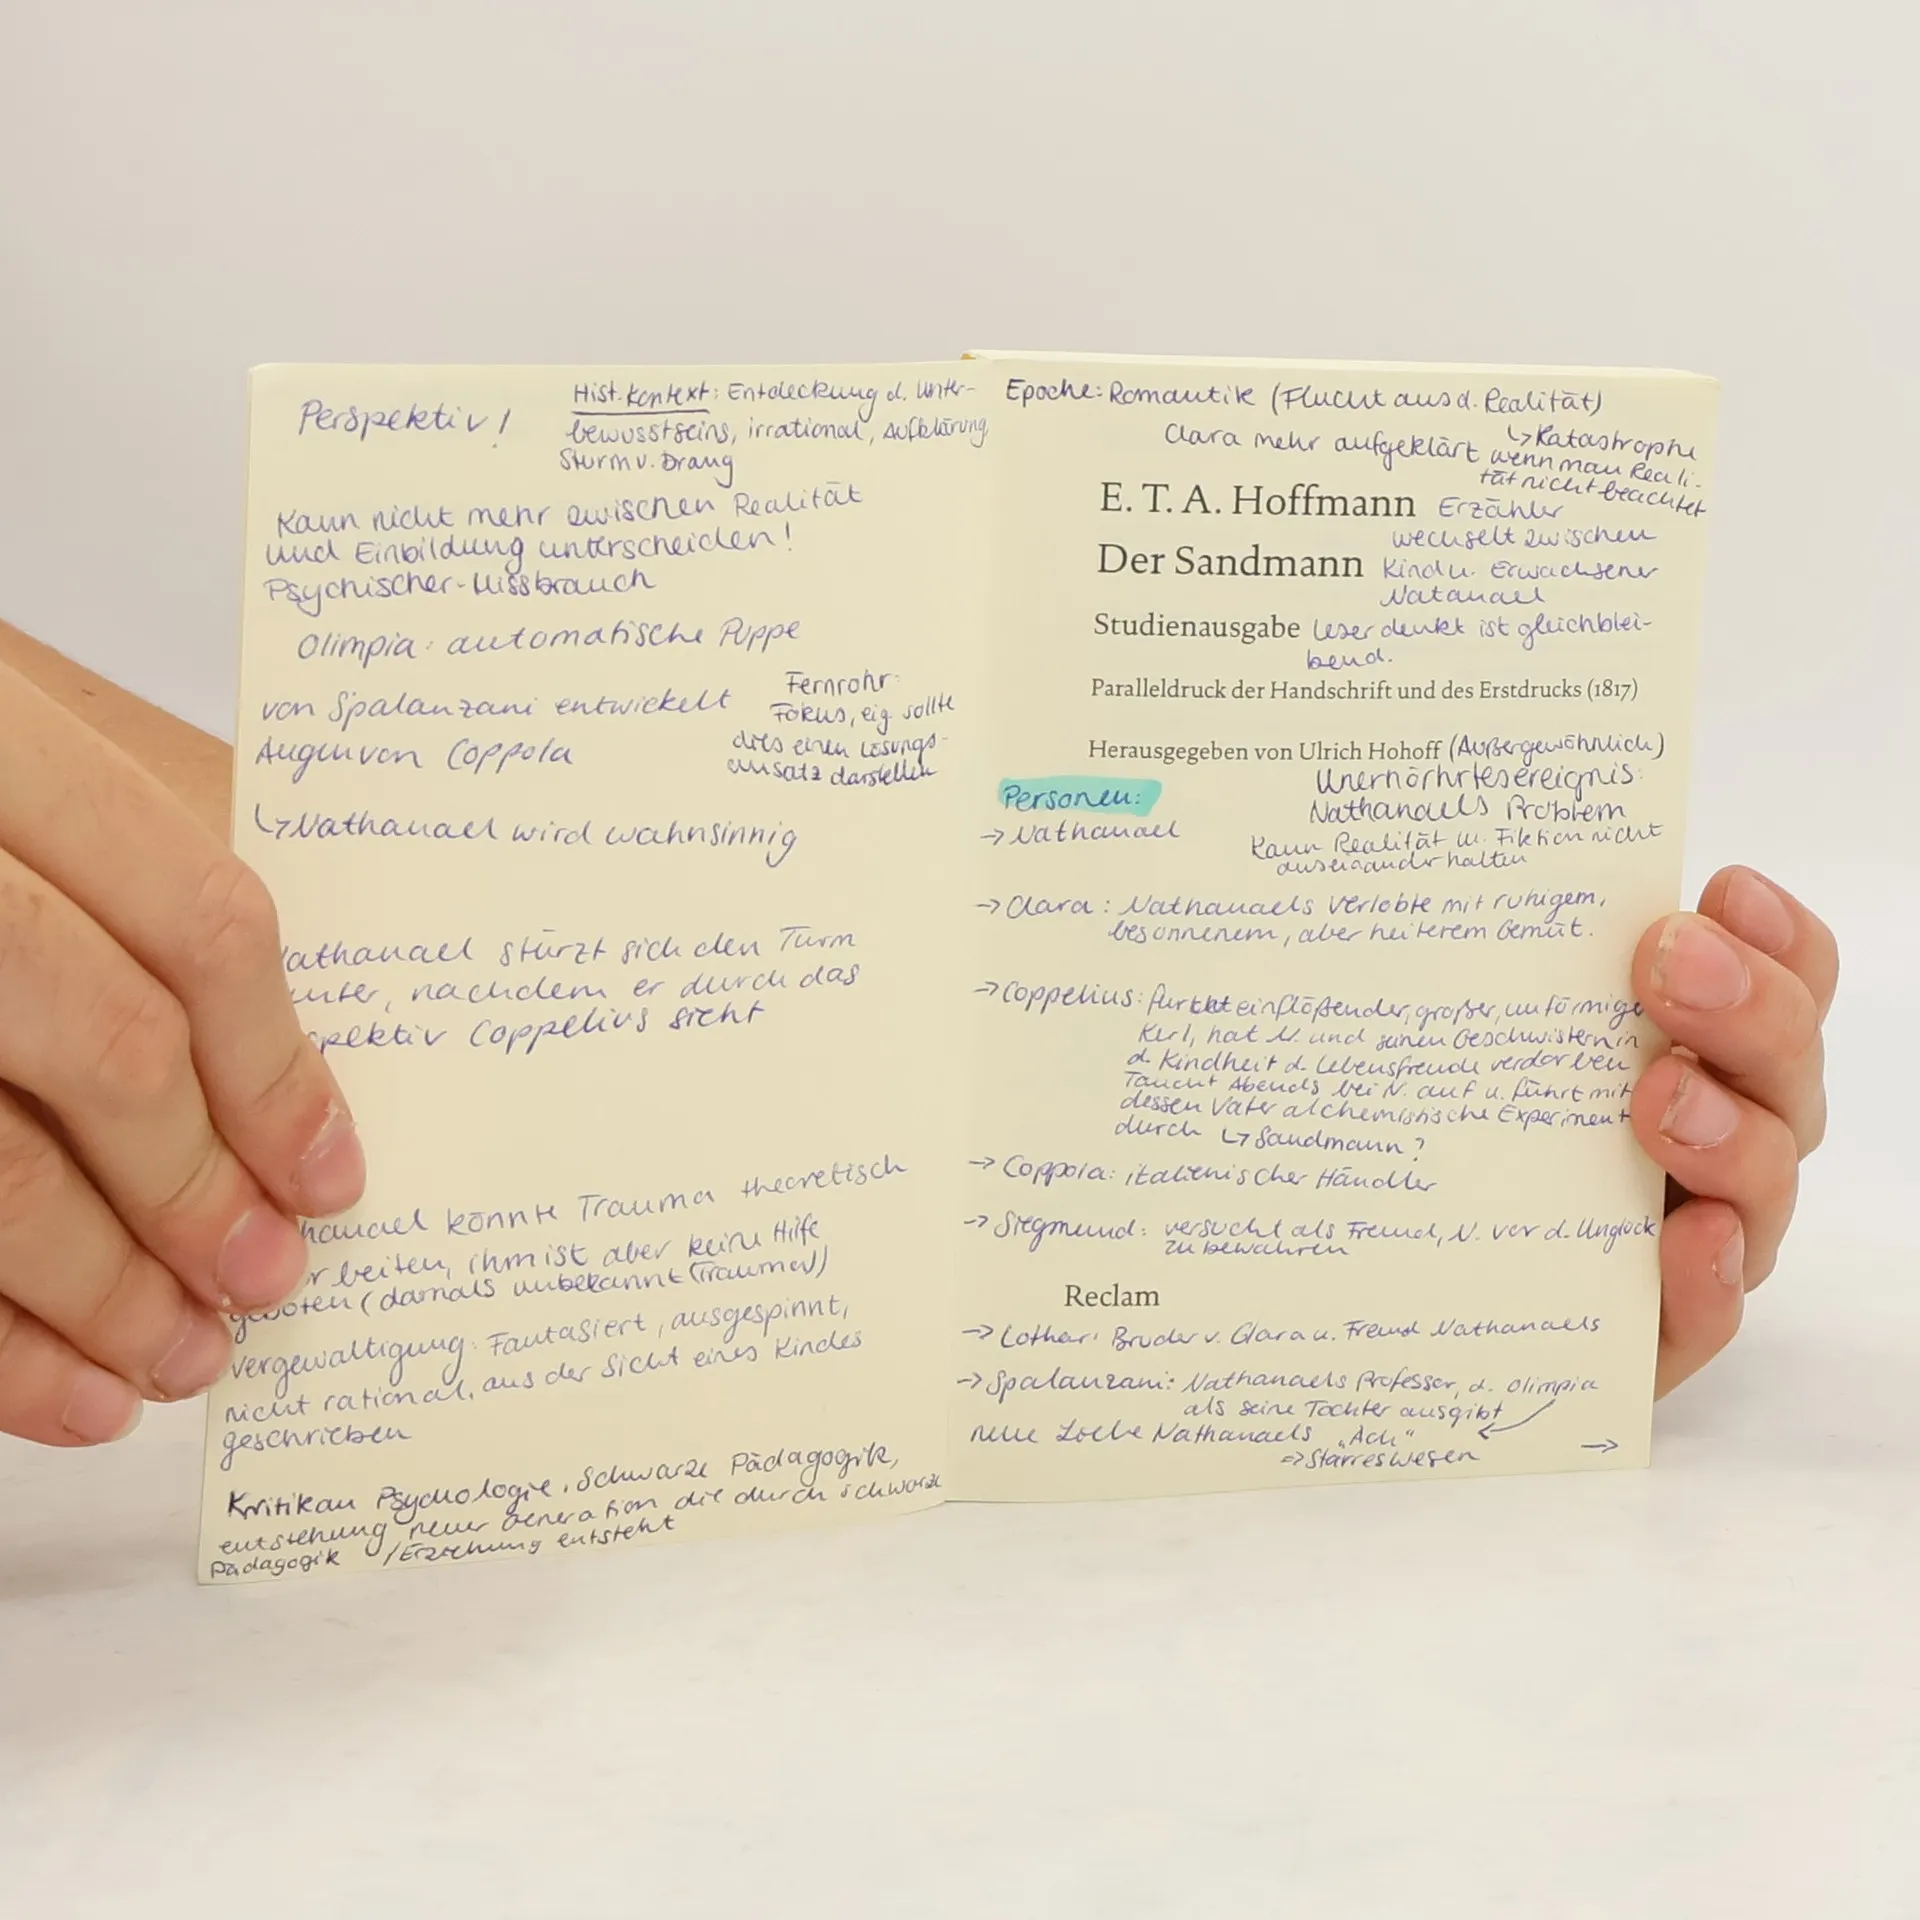 Perspektiv!
Hist. Kontext: Entdeckung d. Unter-
bewusstseins, irrational, Aufklärung
Sturm u. Drang
Kann nicht mehr zwischen Realität
und Einbildung unterscheiden!
Psychischer-Missbrauch
Olimpia: automatische Puppe
von Spalanzani entwickelt
Augen von Coppola
Fernrohr:
Fokus, eig. sollte
dies einen Lösungs-
ansatz darstellen
↳ Nathanael wird wahnsinnig
athanael stürzt sich den Turm
unter, nachdem er durch das
spektiv Coppelius sieht
hanael könnte Trauma theoretisch
rbeiten, ihm ist aber keine Hilfe
geboten (damals unbekannt (Trauma))
Vergewaltigung: Fantasiert, ausgespinnt,
nicht rational, aus der Sicht eines Kindes
geschrieben
Kritik an Psychologie, Schwarze Pädagogik,
entstehung neuer Generation die durch schwarze
Pädagogik /Erziehung entsteht
Epoche: Romantik (Flucht aus d. Realität)
Clara mehr aufgeklärt
↳ Katastrophe
wenn man Reali-
tät nicht beachtet
E. T. A. Hoffmann
Der Sandmann
Erzähler
wechselt zwischen
Kind u. Erwachsener
Natanael
Studienausgabe
Leser denkt ist gleichblei-
bend.
Paralleldruck der Handschrift und des Erstdrucks (1817)
Herausgegeben von Ulrich Hohoff
(Außergewöhnlich)
Unerhörhrtesereignis:
Nathanaels Problem
Kann Realität u. Fiktion nicht
auseinander halten
Personen:
→ Nathanael
→ Clara: Nathanaels Verlobte mit ruhigem,
besonnenem, aber heiterem Gemüt.
→ Coppelius: furchteinflößender, großer, unförmiger
Kerl, hat N. und seinen Geschwistern in
d. Kindheit d. Lebensfreude verdorben
Taucht Abends bei N. auf u. führt mit
dessen Vater alchemistische Experiment
durch ↳ Sandmann?
→ Coppola: italienischer Händler
→ Siegmund: versucht als Freund, N. vor d. Unglück
zu bewahren
Reclam
→ Lothar: Bruder v. Clara u. Freund Nathanaels
→ Spalanzani: Nathanaels Professor, d. Olimpia
als seine Tochter ausgibt
neue Liebe Nathanaels „Ach"
⇒ Starres Wesen
→